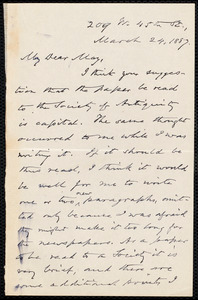 209 W. 45th St.,
March 24, 1887
My Dear May,
I think you sugges-
tion that the paper be read
to the Society of Antiquity
is capital. The same thought
occurred to me while I was
writing it. If it should be
thus read, I think it would
be well for me to write
one or two new paragraphs, omit-
ted only because I was afraid
it might make it too long for
newspapers. As a paper
to be read to a Society it is
very brief, and there are
some additional points I